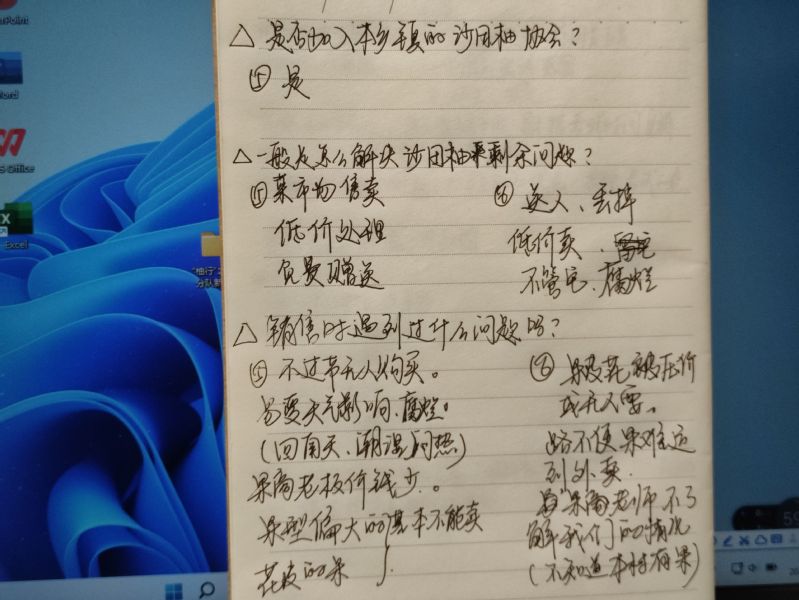 △ 是否加入本乡镇的沙田柚协会？
⑤ 是
△ 一般是怎么解决沙田柚剩余问题？
⑤ 菜市场售卖
低价处理
免费赠送
⑥ 送人、丢掉
低价卖、
不管它、腐烂
△ 销售时遇到过什么问题吗？
⑤ 不过节无人购买。
易受天气影响、腐烂。
(回南天、潮湿闷热)
果商老板价钱少。
果型偏大的基本不能卖
花皮的果
⑥ 果皮花被压价
或无人要。
路不便果难运
到外卖.
果商老师不了
解我们的情况
(不知道本村有果)
PowerPoint
Word
Office
Excel
"柚行"
分队